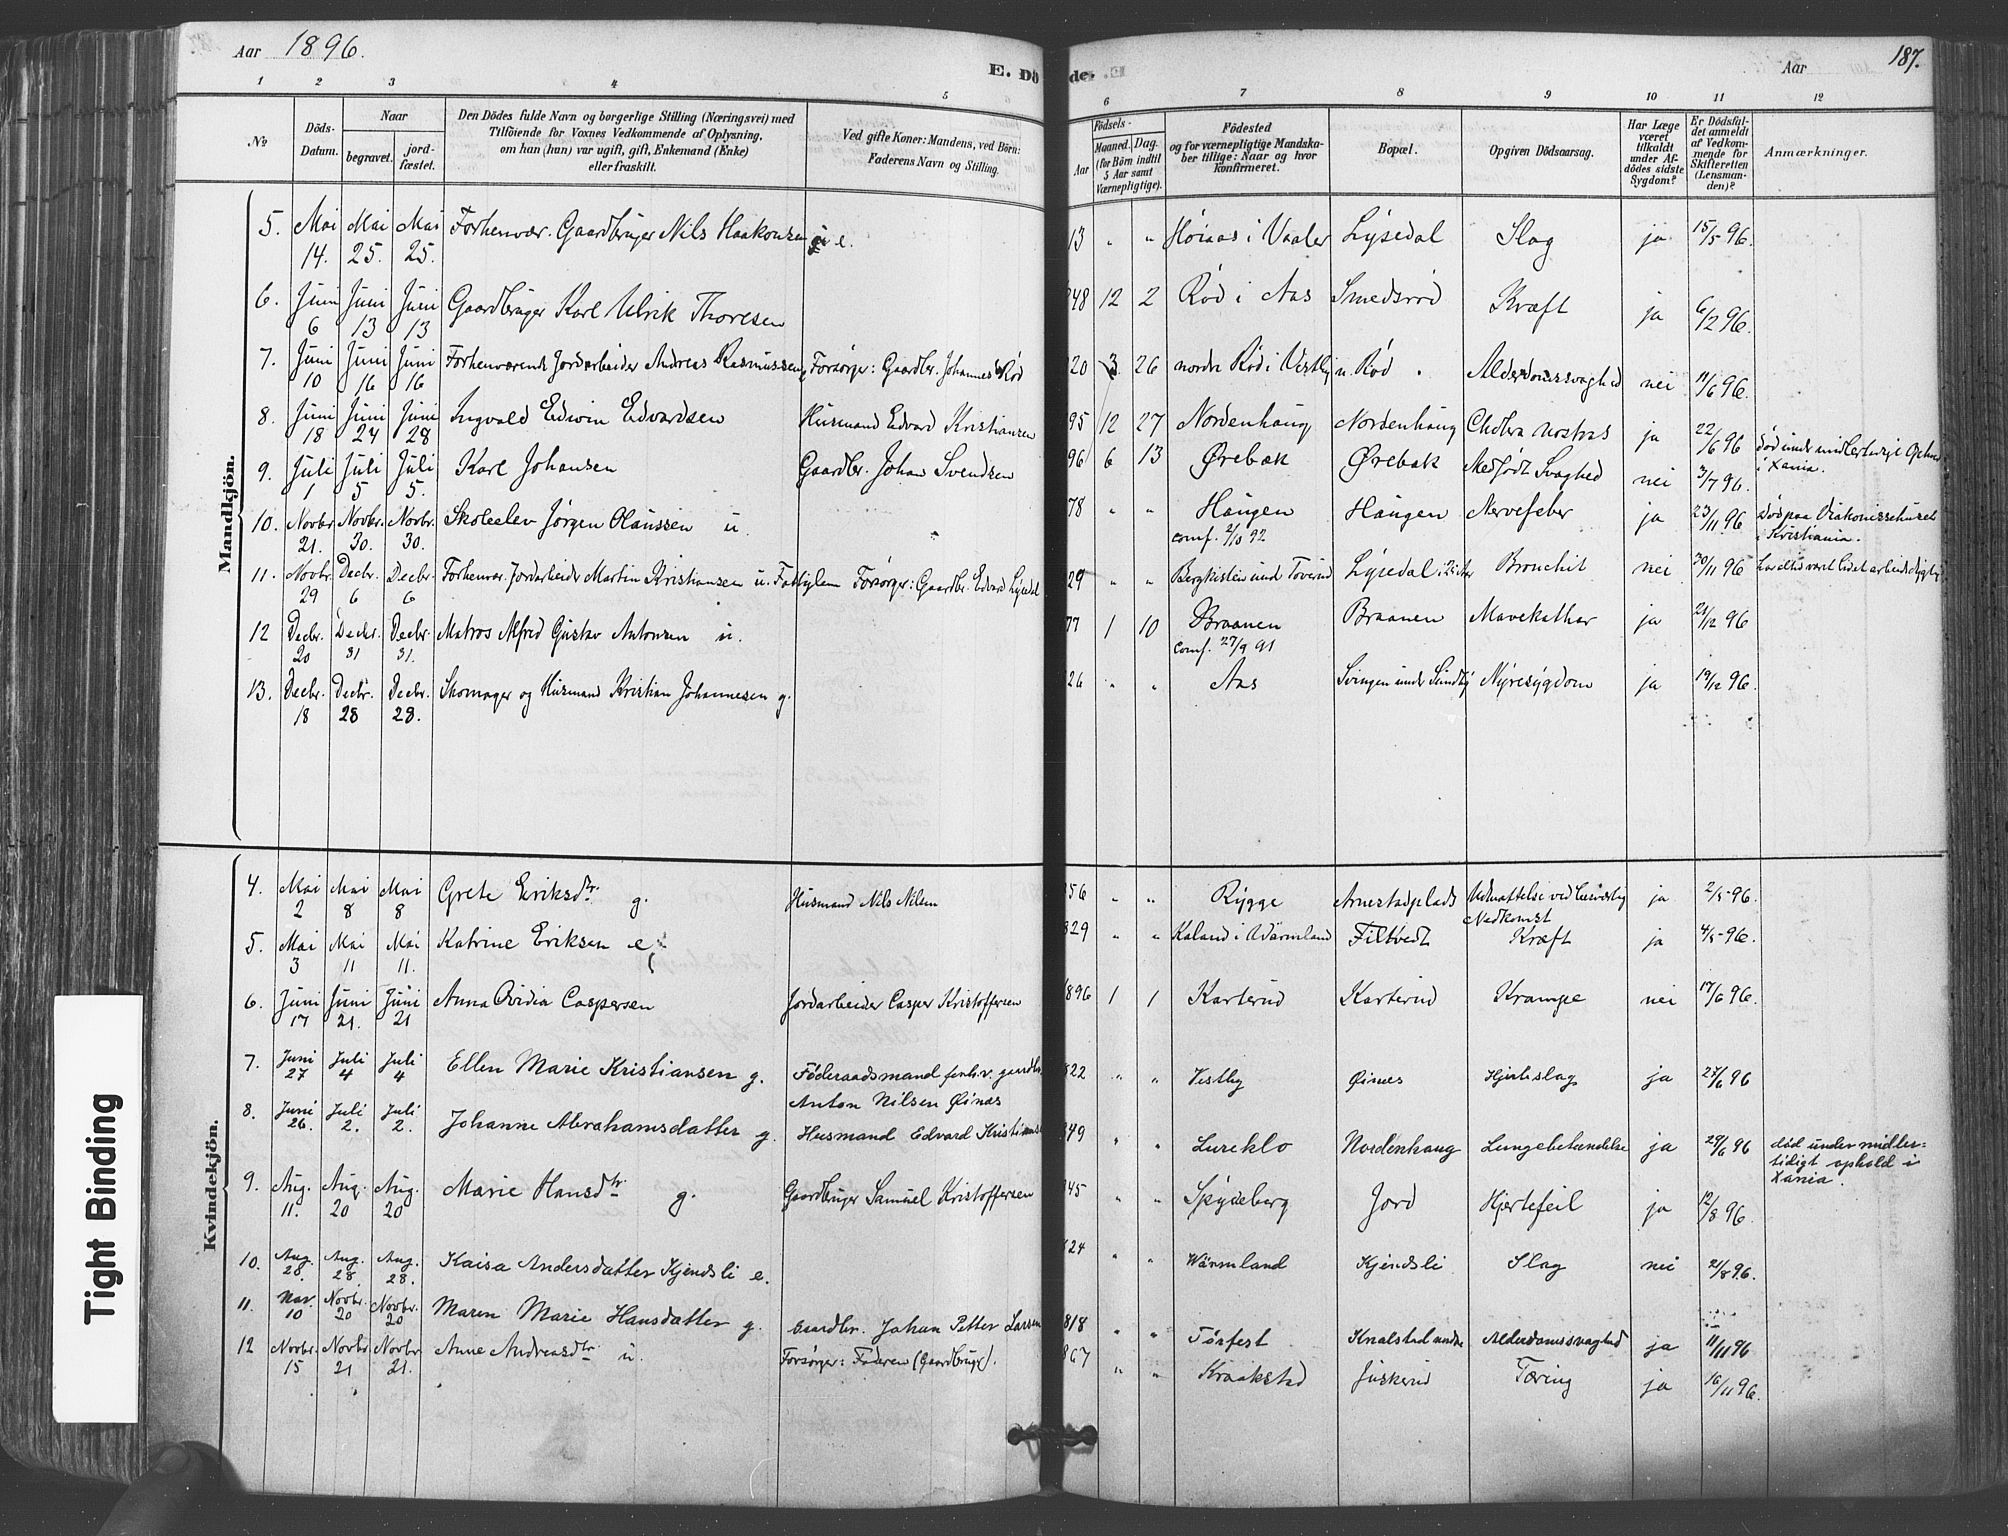 Aar 1896.
E. Dö
de.
Aar
187.
1 2 3 4 5 6 7 8 9 10 11 12
No
Döds-Datum.
Naar
begravet.
jord-fæstet.
Den Dödes fulde Navn og borgerlige Stilling (Næringsvei) med
Tilföiende for Voxnes Vedkommende af Oplysning,
om han (hun) var ugift, gift, Enkemand (Enke)
eller fraskilt.
Ved gifte Koner: Mandens, ved Börn:
Faderens Navn og Stilling.
Födsels-
Aar
Maaned. Dag.
(for Börn indtil
5 Aar samt
Værnepligtige).
Födested
og for værnepligtige Mandska-
ber tillige: Naar og hvor
konfirmeret.
Bopæl.
Opgiven Dödsaarsag.
Har Læge
været
tilkaldt
under Af-
dödes sidste
Sygdom?
Er Dödsfal-
det anmeldt
af Vedkom-
mende for
Skifteretten
(Lensman-
den)?
Anmærkninger.
Mandkjön.
5. Mai 14. Mai 25. Mai 25. Forhenvær. Gaardbruger Nils Haakonsen e. 13 " " Høiaas i Vaaler Lysedal Slag ja 15/5 96.
6. Juni 6 Juni 13 Juni 13 Gaardbruger Karl Ulrik Thoresen 848 12 2 Rød i Aas Smedsrød Kræft ja 6/12 96.
7. Juni 10 Juni 16 Juni 16 Forhenværende Jordarbeider Andreas Rasmussen Forsørger: Gaardbr. Johannes Rød 20 3 26 nordre Rød i Vestby n. Rød Alderdomssvaghed nei 11/6 96.
8. Juni 18 Juni 24 Juni 28 Ingvald Edwin Edvardsen Husmand Edvard Kristiansen 95 12 27 Nordenhaug Nordenhaug Cholera nostras ja 22/6 96 Død under midlertidigt Ophold i Xania.
9. Juli 1 Juli 5 Juli 5. Karl Johansen Gaardbr. Johan Svendsen 96 6 13 Ørebæk Ørebæk Medfødt Svaghed nei 3/7 96.
10. Novbr. 21. Novbr. 30. Novbr. 30. Skoleelev Jørgen Olaussen u. 78 " " Haugen comf. 2/10 92 Haugen Nervefeber ja 23/11 96 Død paa Diakonissehuset i Kristiania.
11. Novbr. 29 Decbr. 6 Decbr. 6 Forhenvær. Jordarbeider Martin Kristiansen u. Fattiglem Forsørger: Gaardbr. Edvard Lysedal 29 " " Bergkisten und. Toverud Lysedal Bronchit nei 30/11 96 har altid været lidet arbeidsdygtig
12 Decbr. 20 Decbr. 31 Decbr. 31. Matros Alfred Gustav Antonsen u. 77 1 10 Braanen comf. 27/9 91 Braanen Mavekathar ja 21/12 96
13. Decbr. 18 Decbr. 28 Decbr. 28. Skomager og Husmand Kristian Johannesen g. 26 " " Aas Svingen under Sundby Nyresygdom ja 19/12 96.
Kvindekjön.
4. Mai 2 Mai 8 Mai 8 Grete Eriksdtr. g. Husmand Nils Nilsen 856 " " Rygge Arnestadplads Udmattelse ved Nedkomst ja 2/5 96.
5. Mai 3 Mai 11 Mai 11. Katrine Eriksen e. 829 " " Kaland i Wärmland Filtvedt Kræft ja 4/5 96.
6. Juni 17 Juni 21. Juni 21 Anna Ovidia Caspersen Jordarbeider Casper Kristoffersen 896 1 1 Karterud Karterud Krampe nei 17/6 96.
7. Juni 27 Juli 4 Juli 4 Ellen Marie Kristiansen g. Føderaadsmand forhv. gaardbr. Anton Nilsen Øinæs 822 " " Vestby Øinæs Hjerteslag ja 27/6 96
8. Juni 26. Juli 2. Juli 2. Johanne Abrahamsdatter g. Husmand Edvard Kristians 849 " " Lureklo Nordenhaug Lungebetændelse ja 29/6 96 død under midler-
tidigt ophold i
Xania.
9. Aug. 11. Aug. 20 Aug. 20 Marie Hansdtr g. Gaardbruger Samuel Kristoffersen 845 " " Spydeberg Jord Hjertefeil ja 12/8 96.
10. Aug. 28. Aug. 28 Aug. 28. Kaisa Andersdatter Kjendsli e. 824 " " Wärmland Kjendsli Slag nei 2/8 96.
11. Nov. 10 Novbr. 20 Novbr. 20 Maren Marie Hansdatter g. Gaardbr. Johan Petter Larsen 818 " " Tøsfest Knalstad Alderdomssvaghed ja 11/11 96
12 Novbr. 15 Novbr. 21 Novbr. 21. Anne Andreasdtr u. Forsørger: Faderen (Gaardbruger). 867 " " Kraakstad Juskerud Tæring ja 16/11 96.
Tight Binding